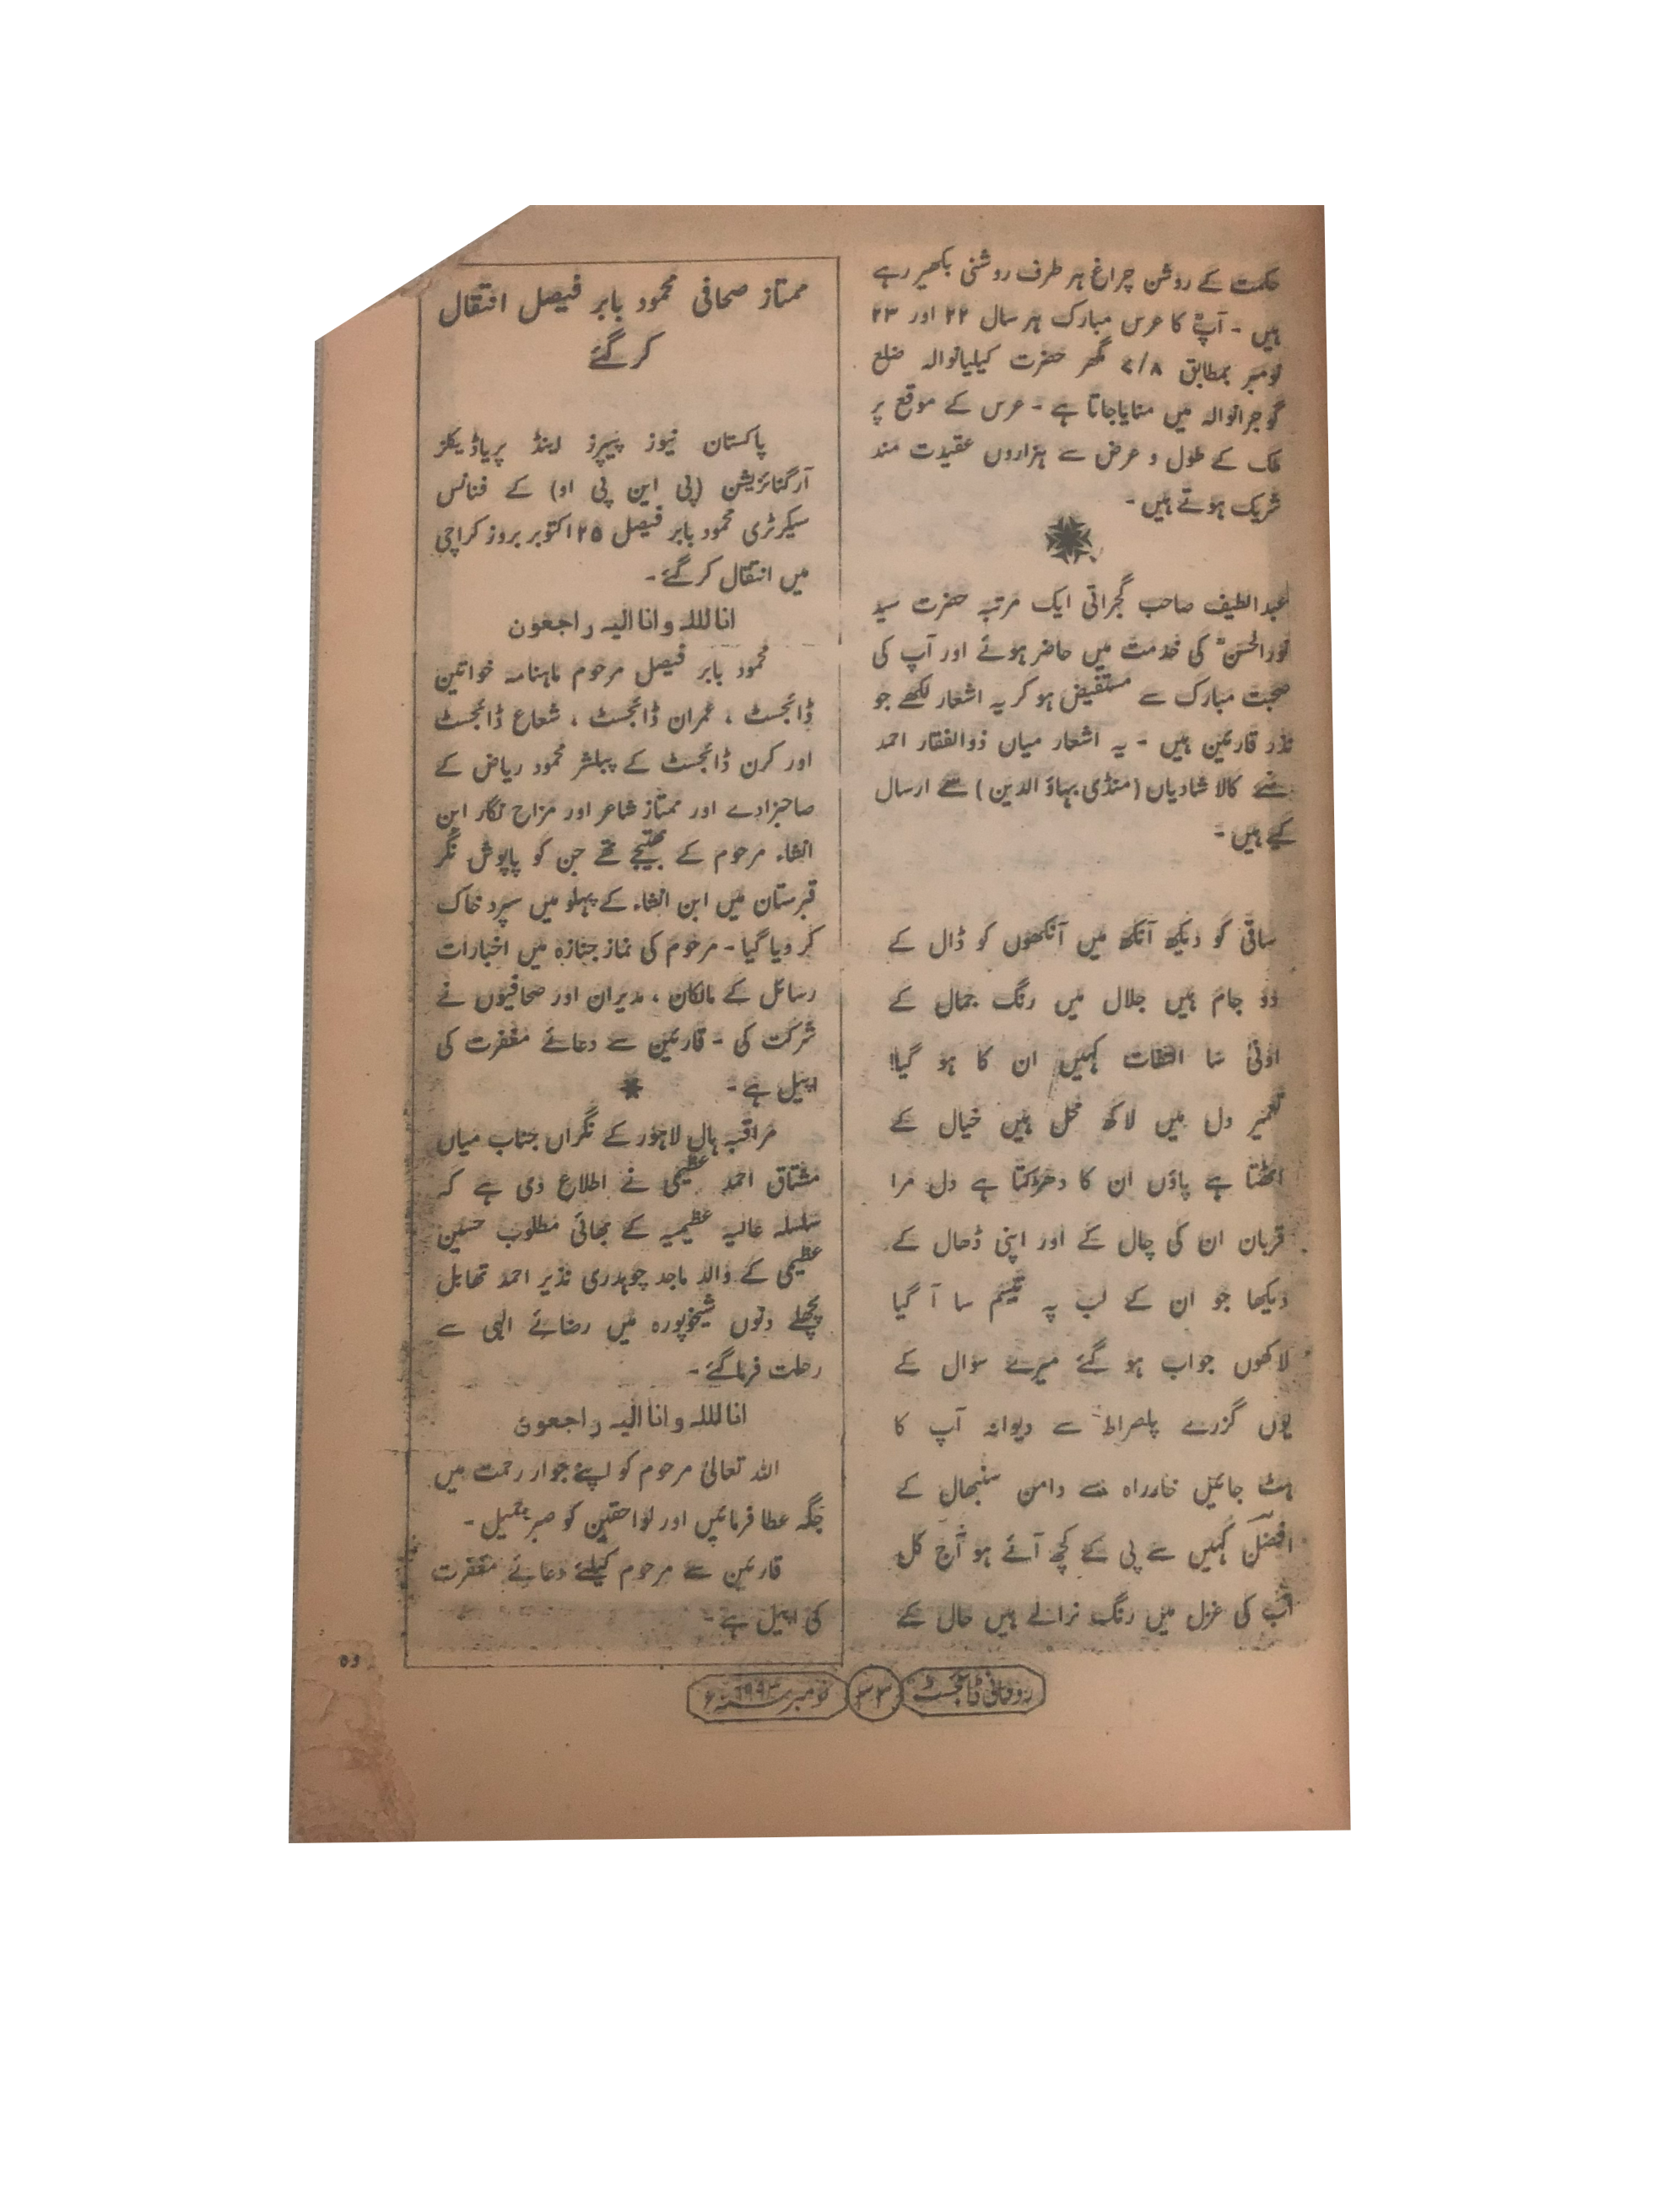 حکمت کے روشن چراغ ہر طرف روشنی بکھیر رہے
ہیں ۔ آپؒ کا عرس مبارک ہر سال ۲۲ اور ۲۳
نومبر بمطابق ۷/۸ مگھر حضرت کیلیانوالہ ضلع
گوجرانوالہ میں منایا جاتا ہے ۔ عرس کے موقع پر
ملک کے طول و عرض سے ہزاروں عقیدت مند
شریک ہوتے ہیں ۔
عبدالطیف صاحب گجراتی ایک مرتبہ حضرت سید
نورالحسنؒ کی خدمت میں حاضر ہوئے اور آپ کی
صحبت مبارک سے مستفیض ہو کر یہ اشعار لکھے جو
نذر قارئین ہیں ۔ یہ اشعار میاں ذوالفقار احمد
نے کالا شادیاں (منڈی بہاؤ الدین) سے ارسال
کیے ہیں ۔
ساقی کو دیکھ آنکھ میں آنکھوں کو ڈال کے
دو جام ہیں جلال میں رنگ جمال کے
ادنیٰ سا التفات کہیں ان کا ہو گیا!
تعمیر دل میں لاکھ محل ہیں خیال کے
اٹھتا ہے پاؤں ان کا دھڑکتا ہے دل مرا
قربان ان کی چال کے اور اپنی ڈھال کے
دیکھا جو ان کے لب پہ تبسم سا آ گیا
لاکھوں جواب ہو گئے میرے سوال کے
یوں گزرے پلصراط سے دیوانہ آپ کا
ہٹ جائیں خارراہ سے دامن سنبھال کے
افضلؔ کہیں سے پی کے کچھ آئے ہو آج کل
اب کی غزل میں رنگ نرالے ہیں حال کے
ممتاز صحافی محمود بابر فیصل انتقال
کر گئے
پاکستان نیوز پیپرز اینڈ پریاڈیکلز
آرگنائزیشن (پی این پی او) کے فنانس
سیکرٹری محمود بابر فیصل ۲۵ اکتوبر بروز کراچی
میں انتقال کر گئے ۔
انا للله و انا الیه راجعون
محمود بابر فیصل مرحوم ماہنامہ خواتین
ڈائجسٹ ، عمران ڈائجسٹ ، شعاع ڈائجسٹ
اور کرن ڈائجسٹ کے پبلشر محمود ریاض کے
صاحبزادے اور ممتاز شاعر اور مزاح نگار ابن
انشاء مرحوم کے بھتیجے تھے جن کو پاپوش نگر
قبرستان میں ابن انشاء کے پہلو میں سپرد خاک
کر دیا گیا ۔ مرحوم کی نماز جنازہ میں اخبارات
رسائل کے مالکان ، مدیران اور صحافیوں نے
شرکت کی ۔ قارئین سے دعائے مغفرت کی
اپیل ہے ۔
مراقبہ ہال لاہور کے نگراں جناب میاں
مشتاق احمد عظیمی نے اطلاع دی ہے کہ
سلسلہ عالیہ عظیمیہ کے بھائی مطلوب حسین
عظیمی کے والد ماجد چوہدری نذیر احمد تھابل
پچھلے دنوں شیخوپورہ میں رضائے الٰہی سے
رحلت فرما گئے ۔
انا للله و انا الیه راجعون
اللہ تعالیٰ مرحوم کو اپنے جوار رحمت میں
جگہ عطا فرمائیں اور لواحقین کو صبر جمیل ۔
قارئین سے مرحوم کیلئے دعائے مغفرت
کی اپیل ہے ۔
روحانی ڈائجسٹ ۳۳ نومبر ۱۹۹۳ء